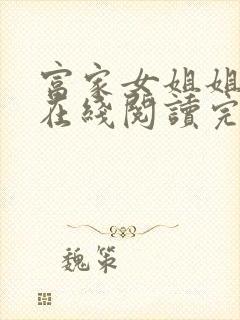 富家女姐姐
在綫閱讀完
魏策